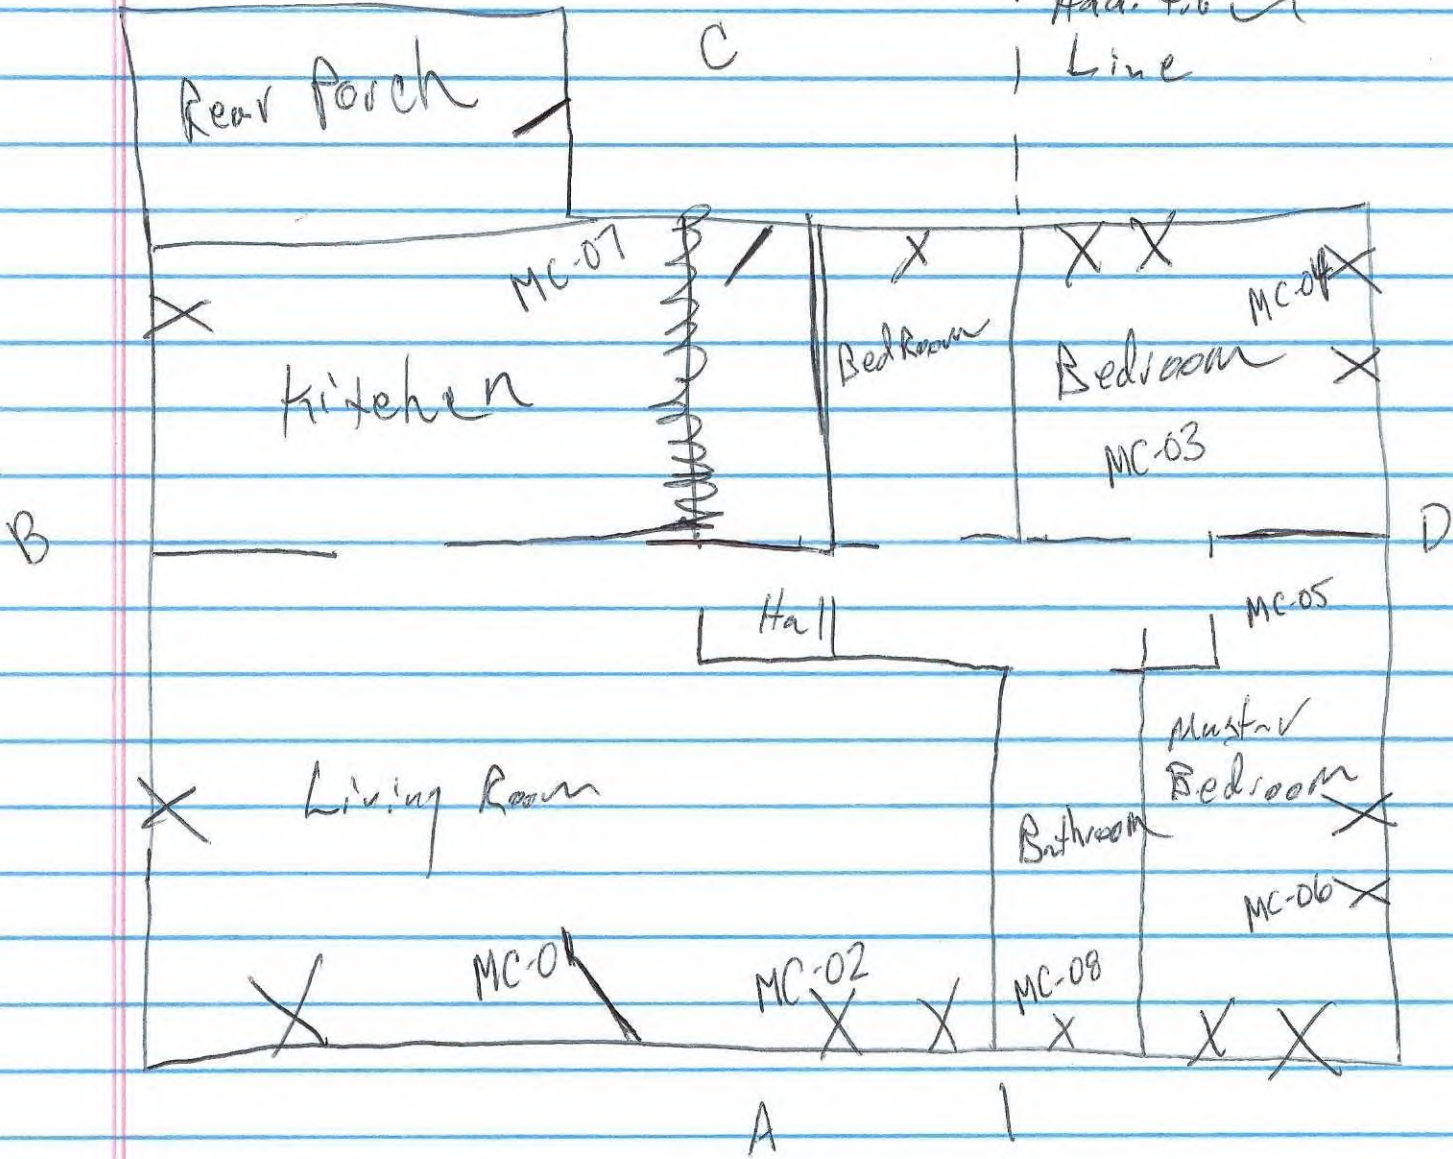 Addition
Line
C
Rear Porch
MC-07
MC-04
Kitchen
BedRoom
Bedroom
MC-03
B
D
Hall
MC-05
Master
Bedroom
Living Room
Bathroom
MC-06
MC-0
MC-02
MC-08
A